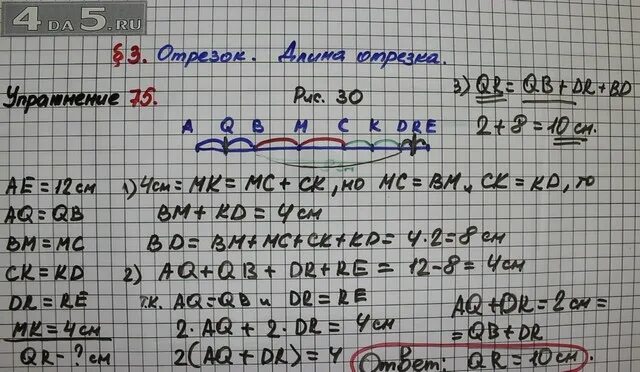 4DA5.RU
§3. Отрезок. Длина отрезка.
Упражнение 75.
Рис. 30
A Q B M C K D R E
AE = 12 см
AQ = QB
BM = MC
CK = KD
DR = RE
MK = 4 см
QR - ? см
1) 4 см = MK = MC + CK, но MC = BM и CK = KD, то
BM + KD = 4 см
BD = BM + MC + CK + KD = 4 · 2 = 8 см
2) AQ + QB + DR + RE = 12 - 8 = 4 см
т.к. AQ = QB и DR = RE
2 · AQ + 2 · DR = 4 см
2(AQ + DR) = 4
AQ + DR = 2 см =
= QB + DR
3) QR = QB + DR + BD
2 + 8 = 10 см.
Ответ: QR = 10 см.